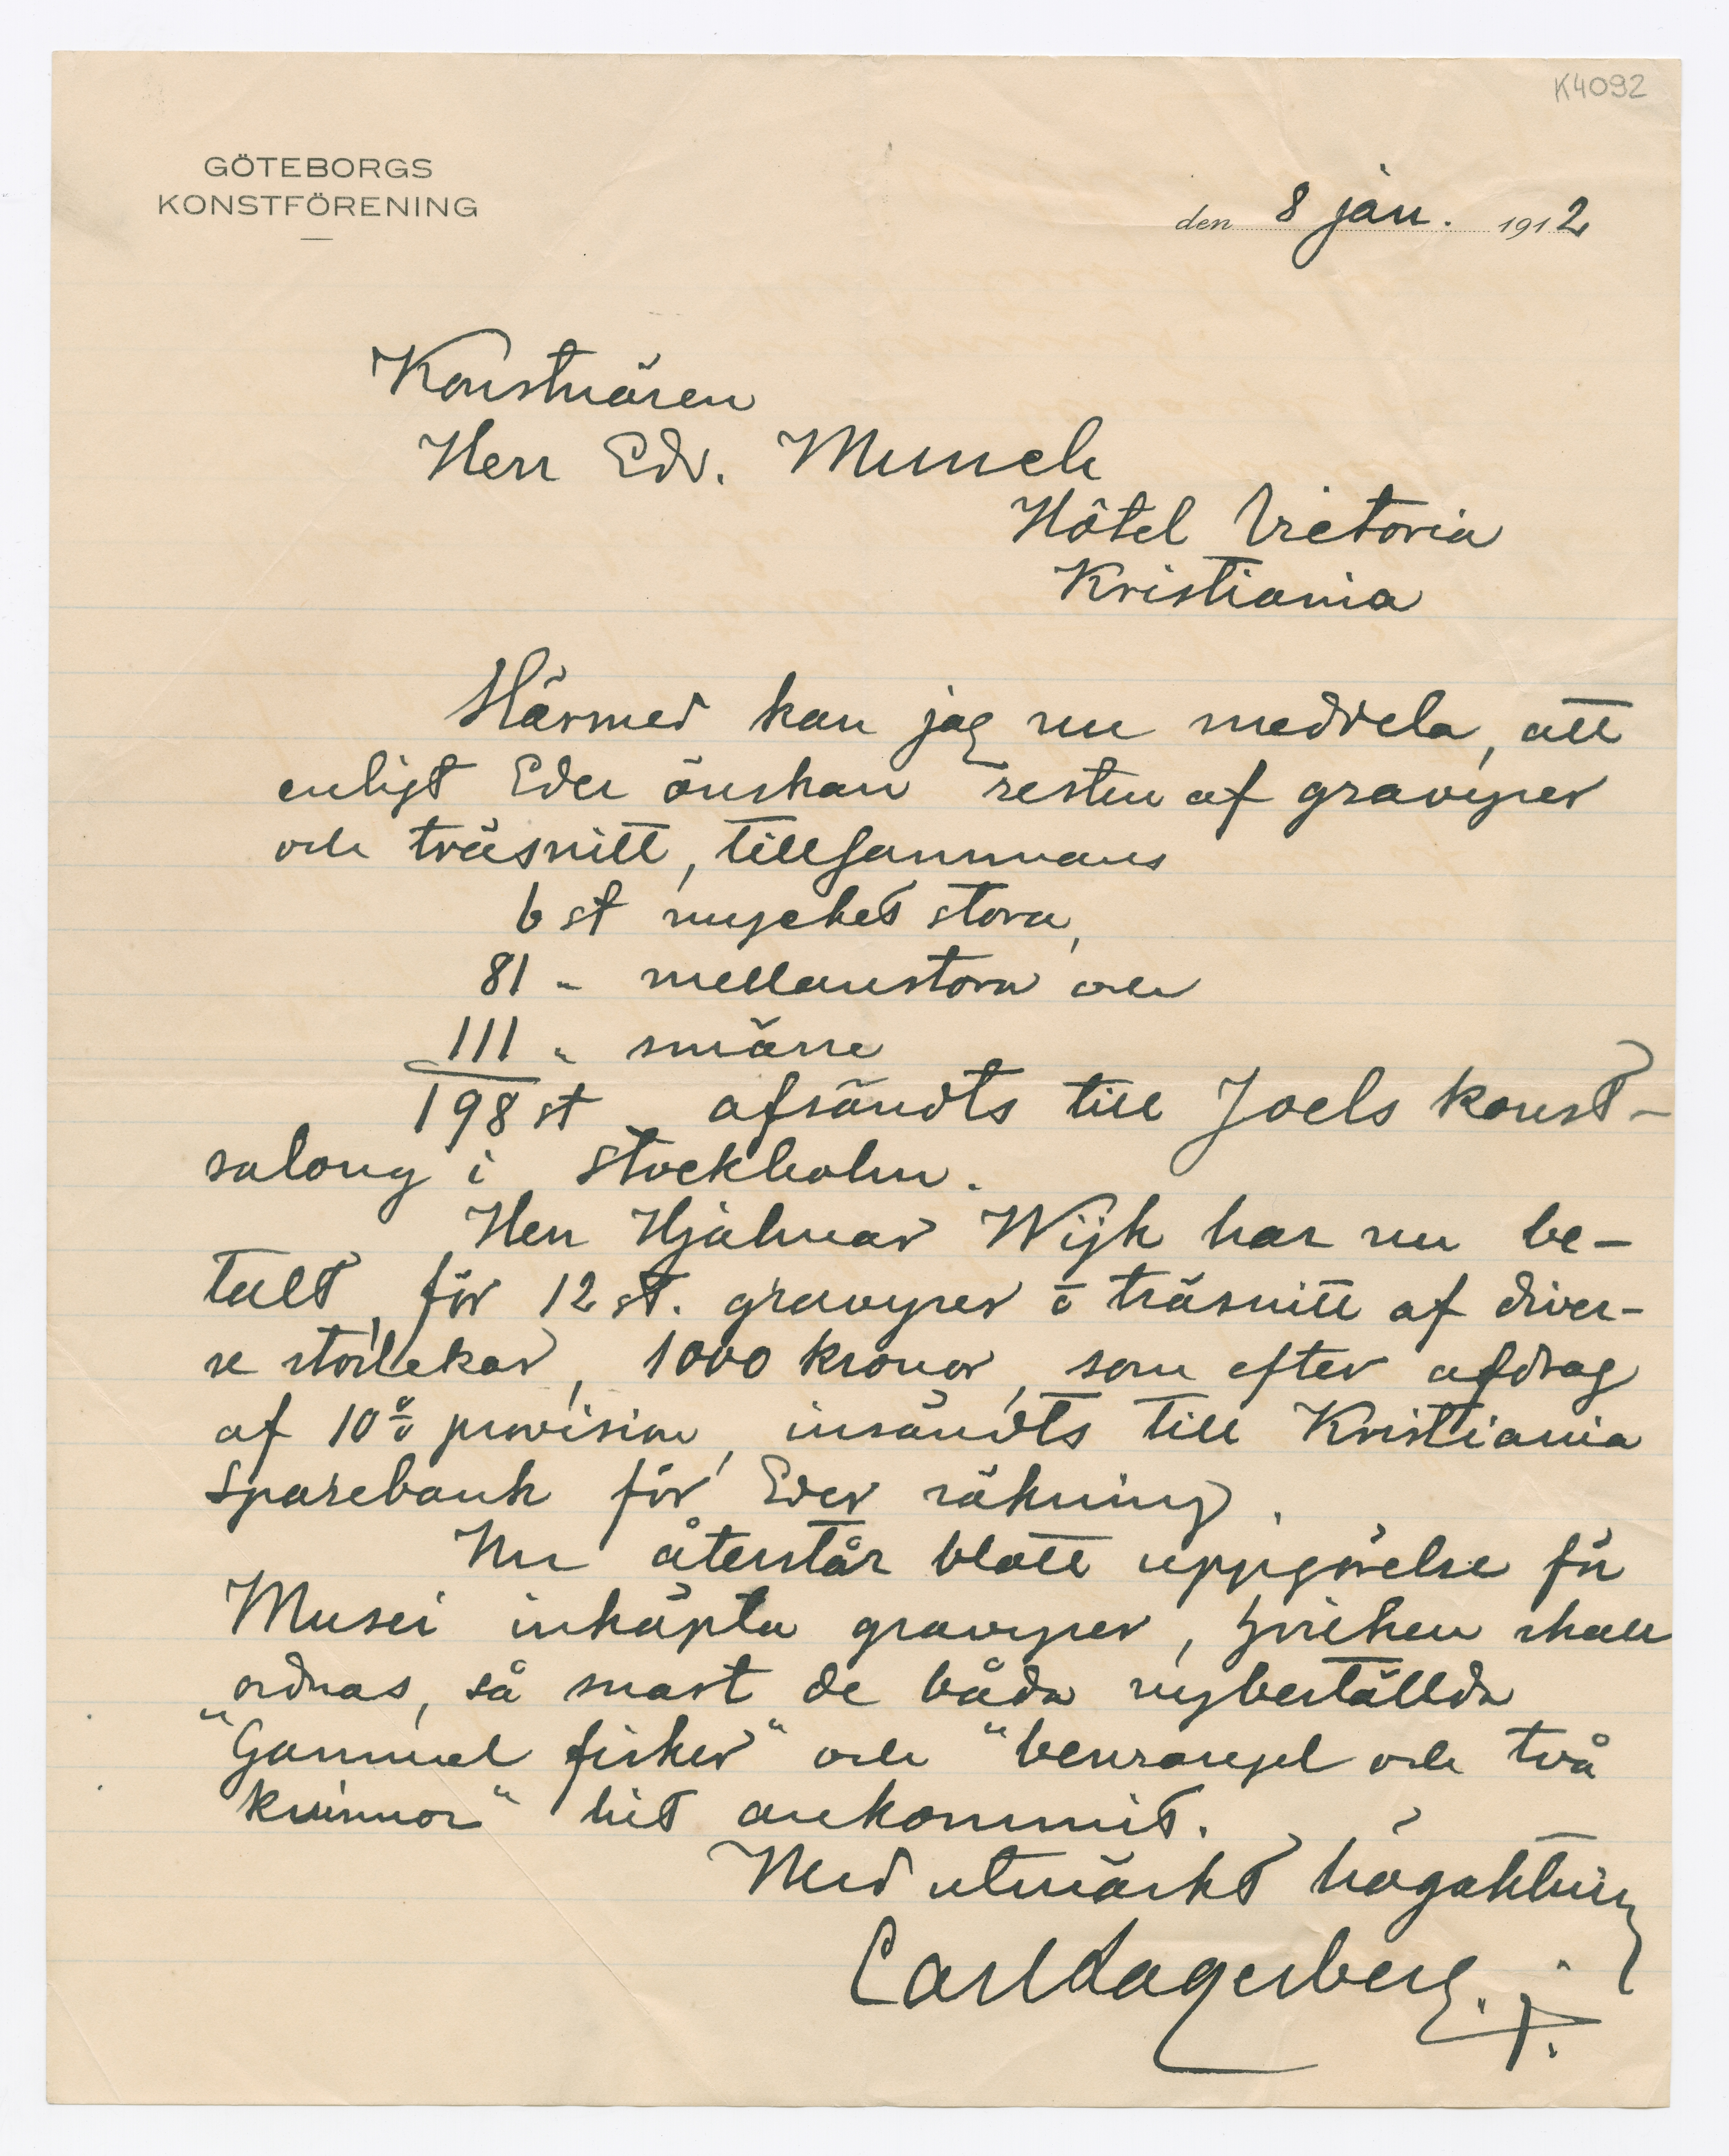 K4092
GÖTEBORGS
KONSTFÖRENING
den 8 jan. 1912
Konstnären
Herr Edv. Munch
Hôtel Victoria
Kristiania
Härmed kan jag nu meddela, att
enligt Eder önskan resten af gravyrer
och träsnitt, tillsammans
6 st mycket stora,
81 " mellanstora och
111 " smärre
198 st afsändts till Joels konst-
salong i Stockholm.
Herr Hjalmar Wijk har nu be-
talt, för 12 st. gravyrer o träsnitt af diver-
se storlekar, 1000 kronor, som efter afdrag
af 10% provision, insändts till Kristiania
Sparebank för Eder räkning.
Nu återstår blott uppgörelse för
Musei inköpta gravyrer, hvilken skall
ordnas, så snart de båda nybeställda
"Gammel fisker" och "benrangel och två
kvinnor" hit ankommit.
Med utmärkt högaktning
Carl Lagerberg.